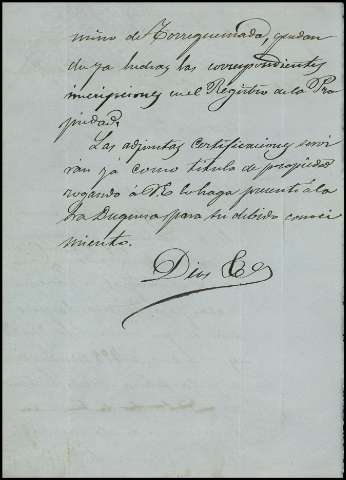 mino de Torrequemada, quedan
do ya hechas las correspondientes
inscripciones en el Registro de la Pro
piedad.
Las adjuntas certificaciones servi
rán yá como título de propiedad
rogando á V.E. lo haga presente á la
Sra Duquesa para su debido conoci
miento.
Dios &